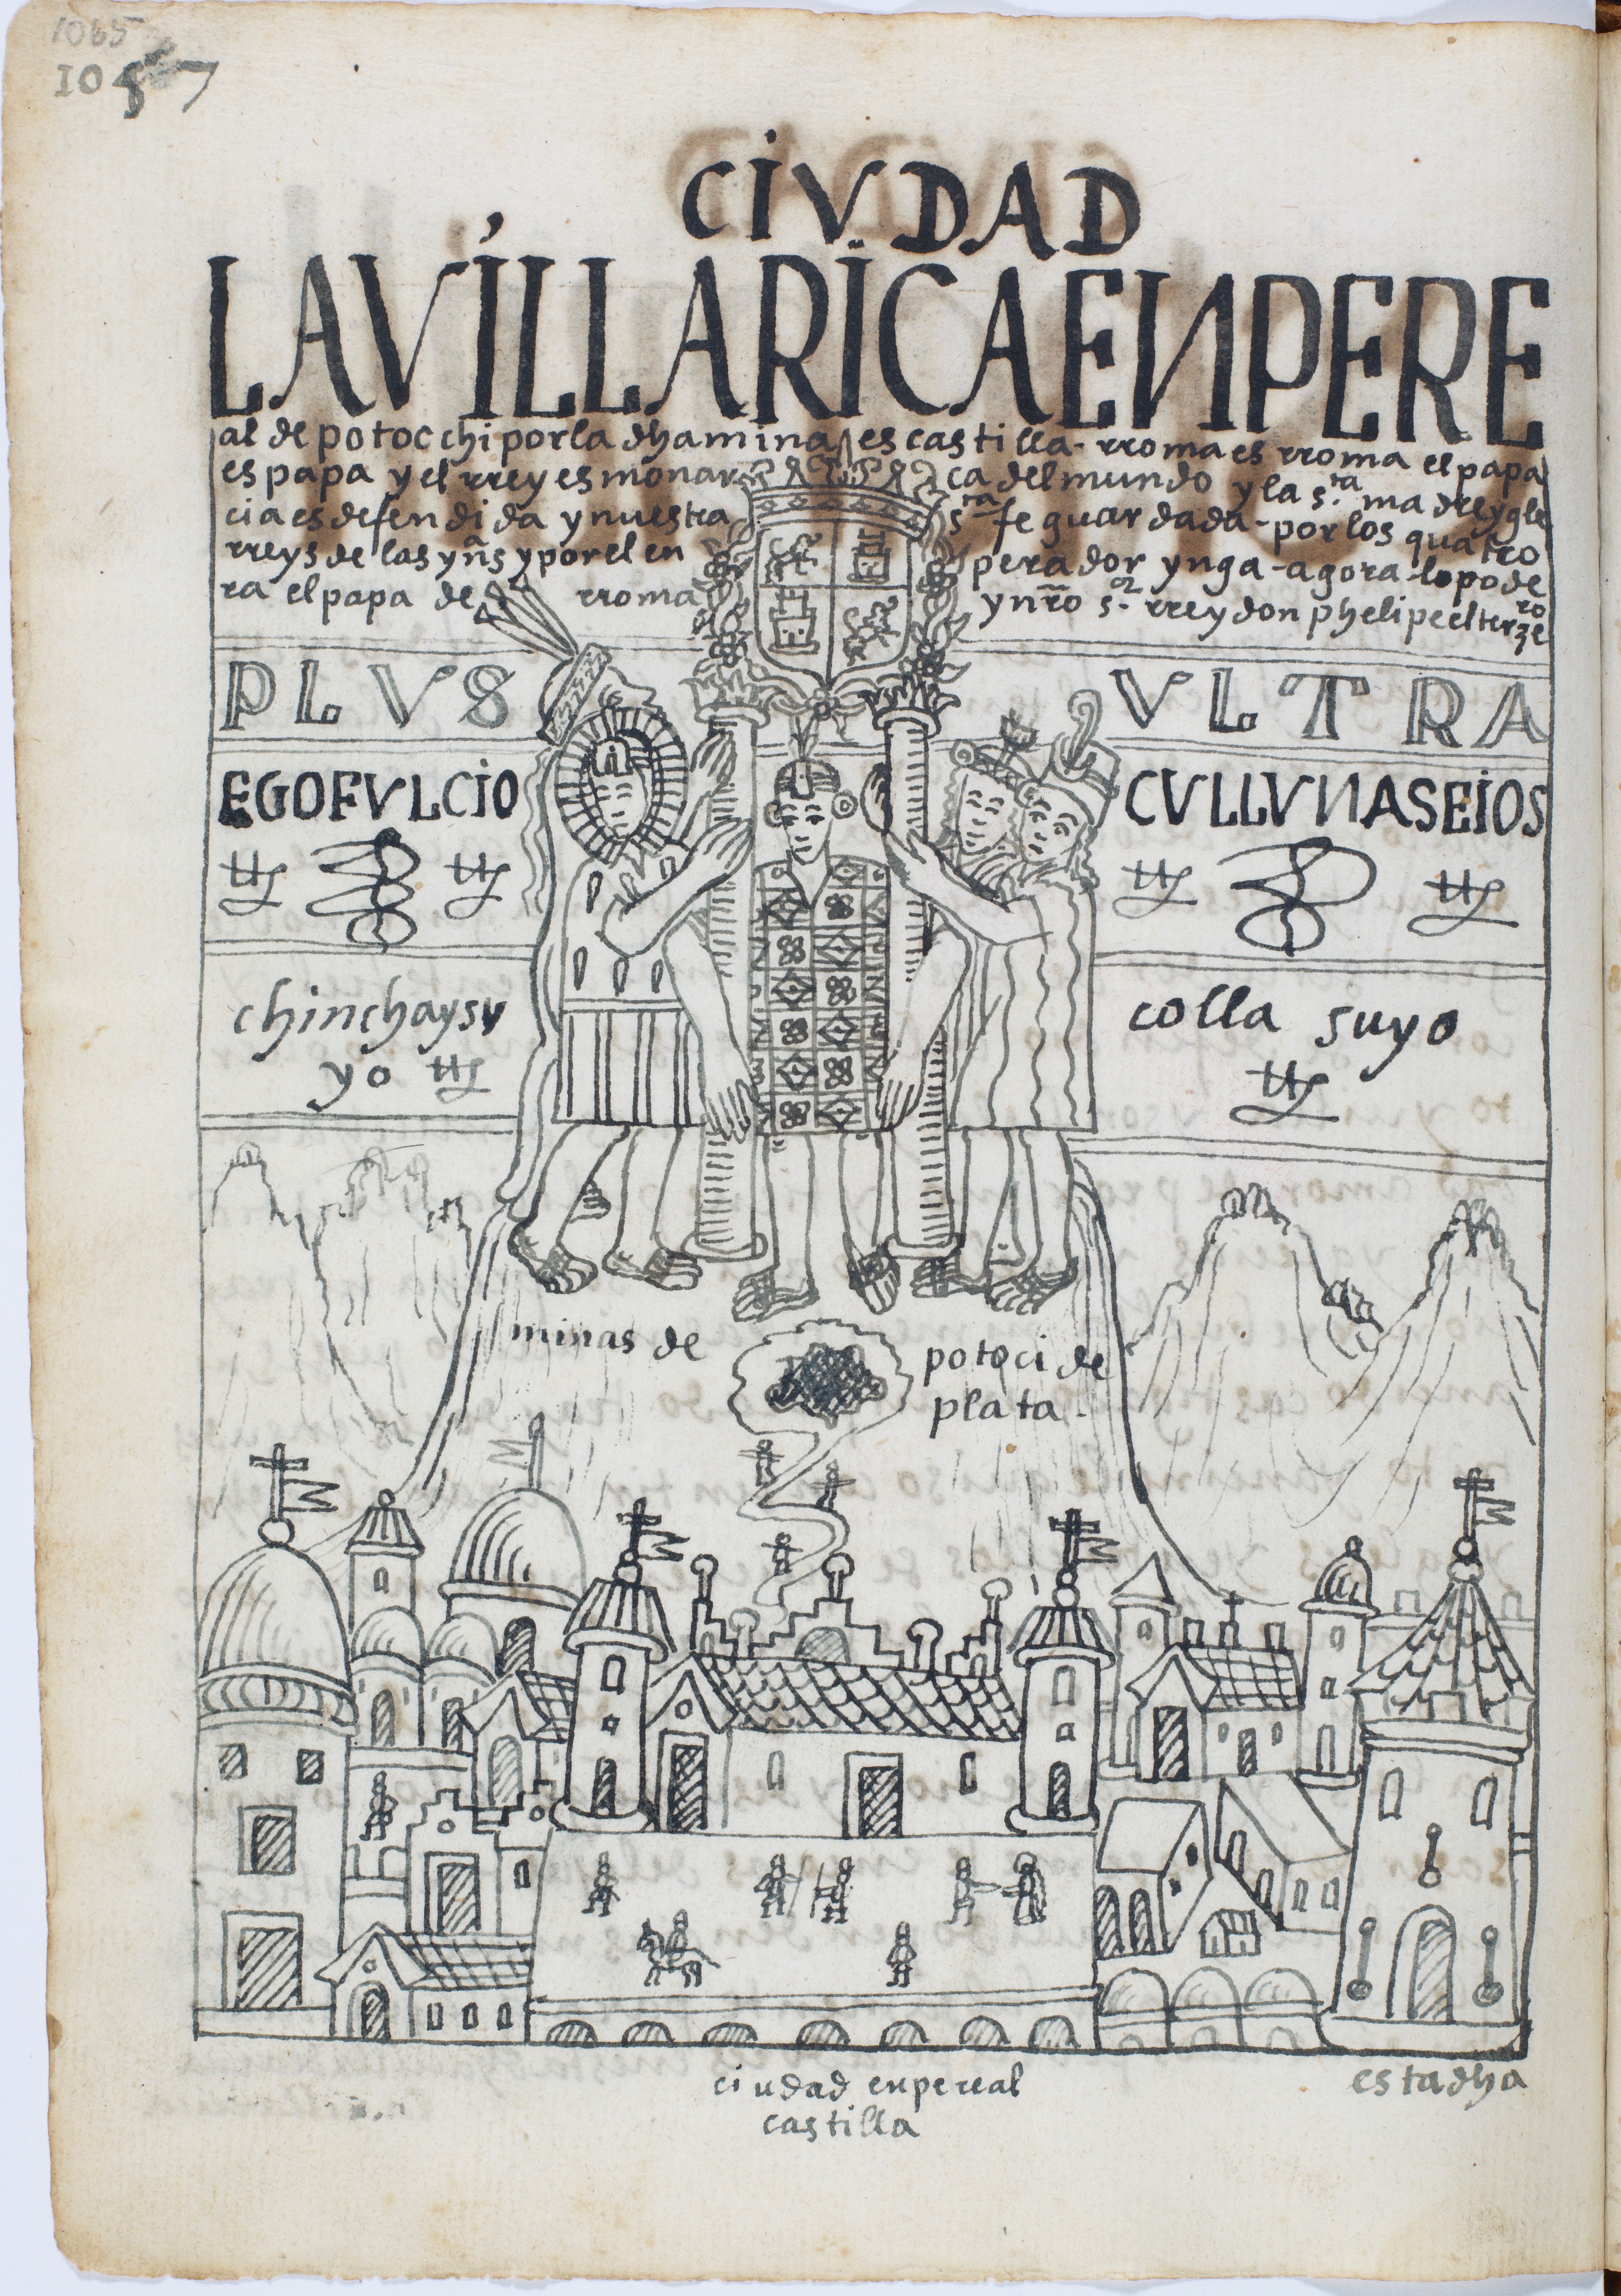 1065
1057
CIVDAD
LAVÍLLARICAENPERE
al de potocchi por la dha mina es castilla - rroma es rroma el papa
es papa y el rrey es monar ca del mundo y la s.ta madre ygle
cia es defendida y nuestra s.ta fe guardada - por los quatro
rreys de las yñs y por el en perador ynga - agora lo pode
ra el papa de rroma y nr̄o s.or rrey don phelipe el terzero
PLVS VLTRA
EGOFVLCIO CVLLVNASEIOS
chinchaysu
yo
colla suyo
minas de potoci de
plata -
ciudad enpereal
castilla
estadha